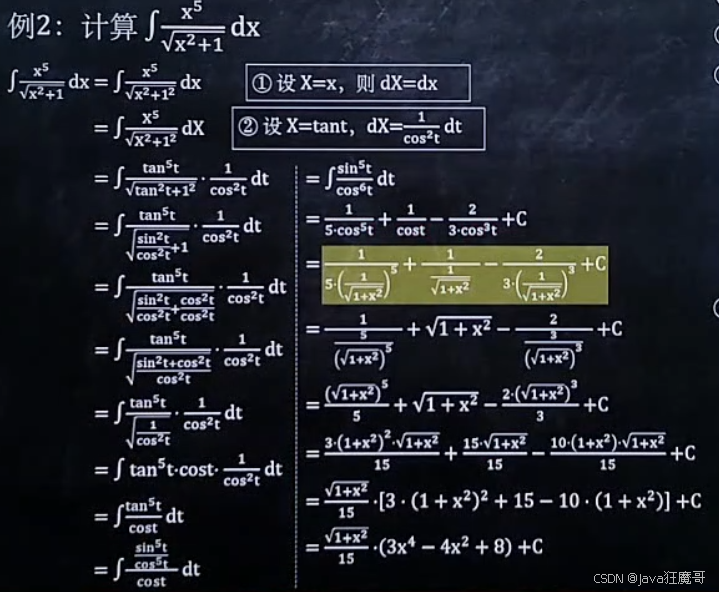 例2：计算∫x⁵/√(x²+1) dx
∫x⁵/√(x²+1) dx = ∫x⁵/√(x²+1²) dx
① 设 X=x，则 dX=dx
= ∫x⁵/√(X²+1²) dX
② 设 X=tant，dX=1/cos²t dt
= ∫tan⁵t/√(tan²t+1²) · 1/cos²t dt
= ∫tan⁵t/√(sin²t/cos²t+1) · 1/cos²t dt
= ∫tan⁵t/√(sin²t/cos²t+cos²t/cos²t) · 1/cos²t dt
= ∫tan⁵t/√((sin²t+cos²t)/cos²t) · 1/cos²t dt
= ∫tan⁵t/√(1/cos²t) · 1/cos²t dt
= ∫ tan⁵t·cost· 1/cos²t dt
= ∫tan⁵t/cost dt
= ∫(sin⁵t/cos⁵t)/cost dt
= ∫sin⁵t/cos⁶t dt
= 1/(5·cos⁵t) + 1/cost − 2/(3·cos³t) +C
= 1/(5·(1/√(1+x²))⁵) + 1/(1/√(1+x²)) − 2/(3·(1/√(1+x²))³) +C
= 1/(5/(√(1+x²))⁵) + √(1+x²) − 2/(3/(√(1+x²))³) +C
= (√(1+x²))⁵/5 + √(1+x²) − 2·(√(1+x²))³/3 +C
= 3·(1+x²)²·√(1+x²)/15 + 15·√(1+x²)/15 − 10·(1+x²)·√(1+x²)/15 +C
= √(1+x²)/15 ·[3·(1+x²)²+15−10·(1+x²)] +C
= √(1+x²)/15 ·(3x⁴−4x²+8) +C
CSDN @Java狂魔哥